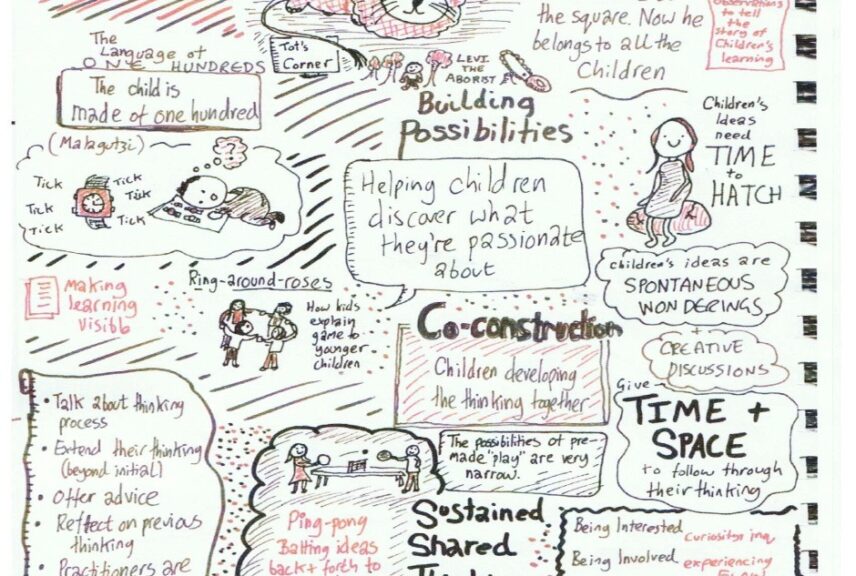 The
Language of
ONE HUNDREDS
The child is
made of one hundred
(Malaguzzi)
Tick
Tick
Tick
Tick
Tick
Tick
?
?
Tot's
Corner
LEVI
THE
ABORIST
Building
Possibilities
the square. Now he
belongs to all the
Children
Observations
to tell
the
story of
Children's
learning
Children's
Ideas
need
TIME
to
HATCH
Helping children
discover what
they're passionate
about
children's ideas are
SPONTANEOUS
WONDERINGS
+
CREATIVE
DISCUSSIONS
Making
learning
visibb
Ring-around-roses
How kids
explain
game to
younger
children
Co-construction
Children developing
the thinking together
Give
TIME +
SPACE
to follow through
their thinking
• Talk about thinking
process
• Extend their thinking
(beyond initial)
• Offer advice
• Reflect on previous
thinking
• Practitioners are
Ping-pong
Batting ideas
back + forth to
The possibilities of pre-
made "play" are very
narrow.
Sustained
Shared
Being Interested curiosity inq
Being Involved experiencing